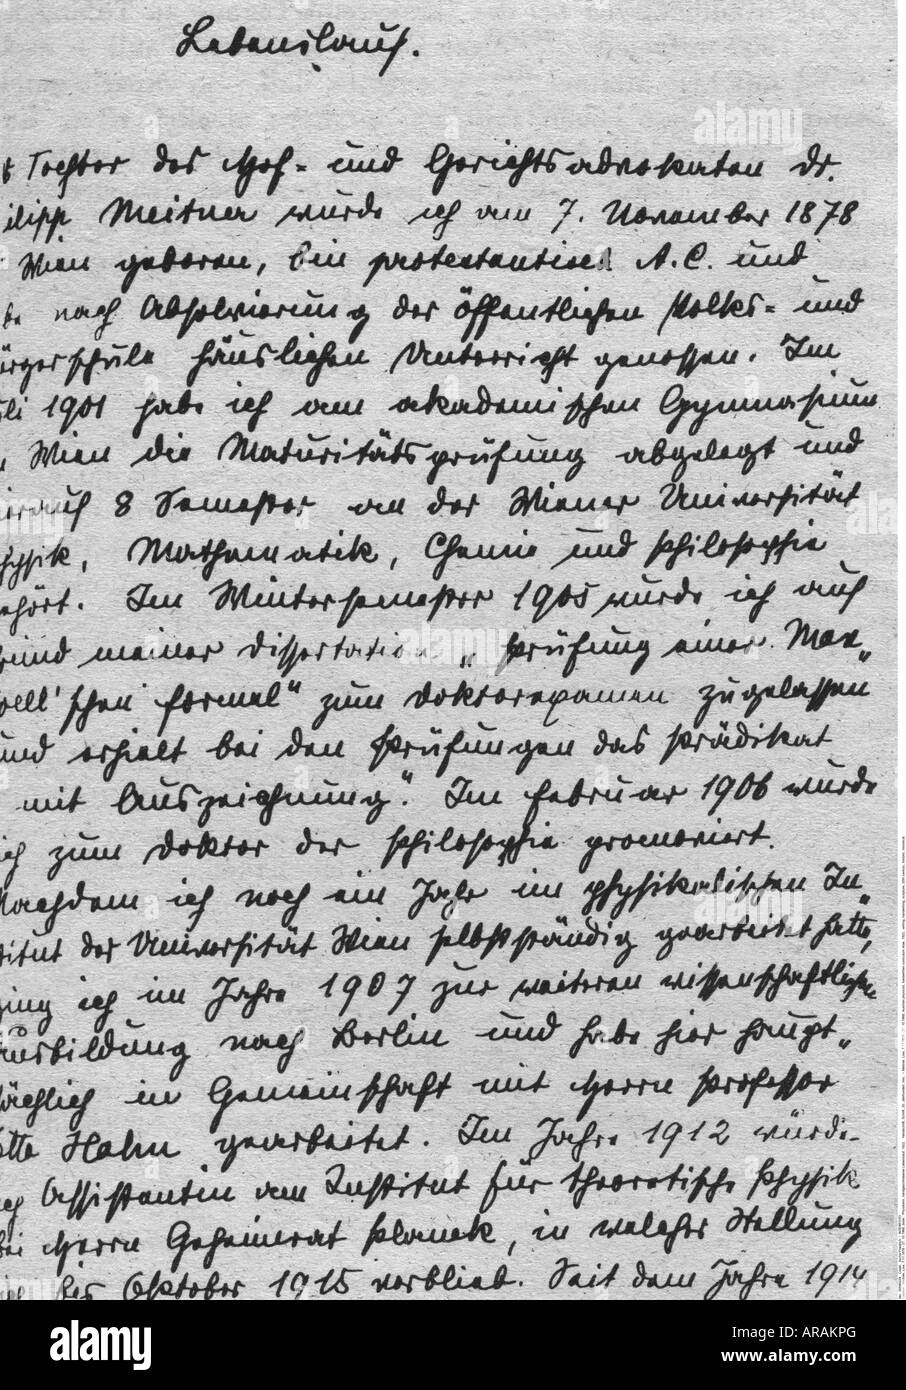 Lebenslauf.
Tochter des Hof- und Gerichtsadvokaten Dr.
ilipp Meitner wurde ich am 7. November 1878
Wien geboren, bin protestantisch A.C. und
be nach Absolvierung der öffentlichen Volks- und
ürgerschule häuslichen Unterricht genossen. Im
li 1901 habe ich am akademischen Gymnasium
Wien die Maturitätsprüfung abgelegt und
ierauf 8 Semester an der Wiener Universität
hysik, Mathematik, Chemie und Philosophie
ehört. Im Wintersemester 1905 wurde ich auf
rund meiner Dissertation „Prüfung einer Max„
well'schen Formel“ zum Doktorexamen zugelassen
und erhielt bei den Prüfungen das Prädikat
mit Auszeichnung“. Im Februar 1906 wurde
ich zum Doktor der Philosophie promoviert.
Nachdem ich noch ein Jahr im physikalischen In„
titut der Universität Wien selbstständig gearbeitet hatte,
ging ich im Jahre 1907 zur weiteren wissenschaftlichen
Ausbildung nach Berlin und habe hier haupt„
sächlich in Gemeinschaft mit Herrn Professor
Otto Hahn gearbeitet. Im Jahre 1912 wurde
ich Assistentin am Institut für theoretische Physik
bei Herrn Geheimrat Planck, in welcher Stellung
ich bis Oktober 1915 verblieb. Seit dem Jahre 1914
alamy
Image ID: ARAKPG
www.alamy.com